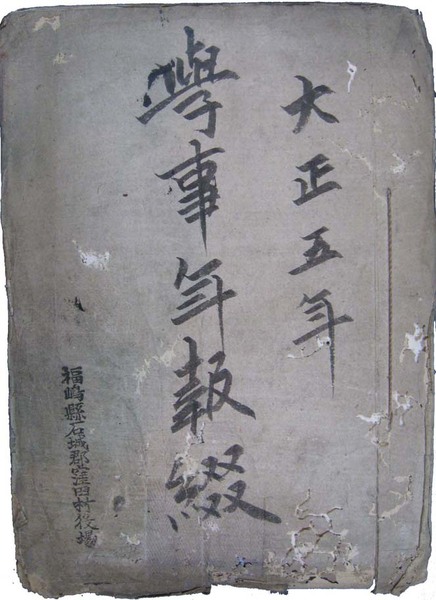 大正五年
學事年報綴
福島縣石城郡窪田村役場